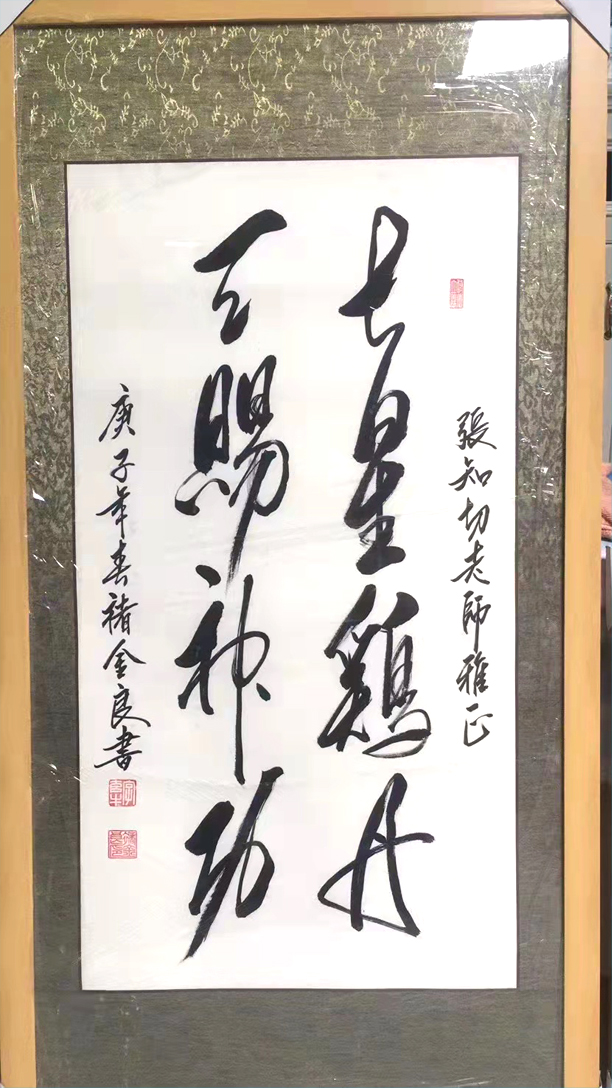 張知切老師雅正
星鷄丹
天賜神功
庚子年春褚金良書